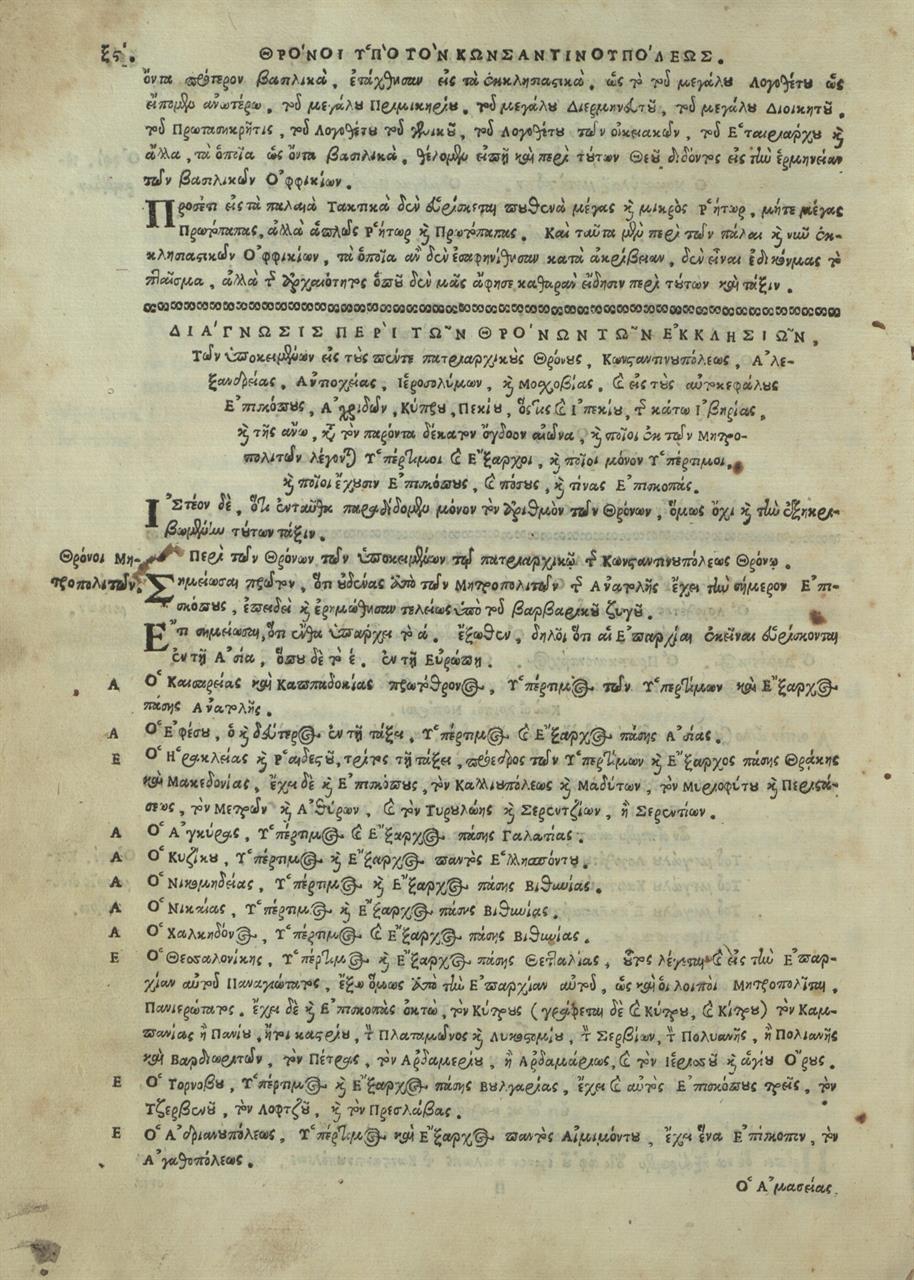 ξϛʹ. ΘΡΟΝΟΙ ΥΠΟ ΤΟΝ ΚΩΝΣΑΝΤΙΝΟΥΠΟΛΕΩΣ.
ὄντα πρότερον βασιλικὰ, ἐτάχθησαν εἰς τὰ ἐκκλησιαστικὰ, ὡς τὸ τοῦ μεγάλου Λογοθέτου ὡς
εἴπομεν ἀνωτέρω, τοῦ μεγάλου Πριμικηρίου, τοῦ μεγάλου Διερμηνευτοῦ, τοῦ μεγάλου Διοικητοῦ,
τοῦ Πρωτασηκρῆτις, τοῦ Λογοθέτου τοῦ γενικοῦ, τοῦ Λογοθέτου τῶν οἰκειακῶν, τοῦ Ἑταιριάρχου καὶ
ἄλλα, τὰ ὁποῖα ὡς ὄντα βασιλικὰ, θέλομεν εἰπῇ καὶ περὶ τούτων Θεοῦ διδόντος εἰς τὴν ἑρμηνείαν
τῶν βασιλικῶν Ὀφφικίων.
Προσέτι εἰς τὰ παλαιὰ Τακτικὰ δὲν εὑρίσκεται πουθενὰ μέγας καὶ μικρὸς Ῥήτωρ, μήτε μέγας
Πρωτόπαπας, ἀλλὰ ἁπλῶς Ῥήτωρ καὶ Πρωτόπαπας. Καὶ ταῦτα μὲν περὶ τῶν πάλαι καὶ νῦν ἐκ-
κλησιαστικῶν Ὀφφικίων, τὰ ὁποῖα ἂν δὲν ἐσαφηνίσθησαν κατὰ ἀκρίβειαν, δὲν εἶναι ἐδικόνμας τὸ
πταῖσμα, ἀλλὰ τῆς ἀρχαιότητος ὁποῦ δὲν μᾶς ἄφησε καθαρὰν εἴδησιν περὶ τούτων καὶ τάξιν.
ΔΙΑΓΝΩΣΙΣ ΠΕΡΙ ΤΩΝ ΘΡΟΝΩΝ ΤΩΝ ΕΚΚΛΗΣΙΩΝ,
Τῶν ὑποκειμένων εἰς τοὺς πέντε πατριαρχικοὺς Θρόνους, Κωνσταντινουπόλεως, Ἀλε-
ξανδρείας, Ἀντιοχείας, Ἱεροσολύμων, καὶ Μοσχοβίας, καὶ εἰς τοὺς αὐτοκεφάλους
Ἐπισκόπους, Ἀχριδῶν, Κύπρου, Πεκίου, ὅστις καὶ Ἰπεκίου, τῆς κάτω Ἰβηρίας,
καὶ τῆς ἄνω, κατὰ τὸν παρόντα δέκατον ὄγδοον αἰῶνα, καὶ ποῖοι ἐκ τῶν Μητρο-
πολιτῶν λέγονται Ὑπέρτιμοι καὶ Ἔξαρχοι, καὶ ποῖοι μόνον Ὑπέρτιμοι,
καὶ ποῖοι ἔχουσιν Ἐπισκόπους, καὶ πόσους, καὶ τίνας Ἐπισκοπάς.
Ἰστέον δὲ, ὅτι ἐνταῦθα παραδίδομεν μόνον τὸν ἀριθμὸν τῶν Θρόνων, ὅμως ὄχι καὶ τὴν ἐξηκρι-
βωμένην τούτων τάξιν.
Θρόνοι Μη-
τροπολιτῶν.
Περὶ τῶν Θρόνων τῶν ὑποκειμένων τῷ πατριαρχικῷ τῆς Κωνσταντινουπόλεως Θρόνῳ.
Σημείωσαι πρῶτον, ὅτι οὐδένας ἀπὸ τῶν Μητροπολιτῶν τῆς Ἀνατολῆς ἔχει τὴν σήμερον Ἐπι-
σκόπους, ἐπειδὴ καὶ ἐρημώθησαν τελείως ὑπὸ τοῦ βαρβαρικοῦ ζυγοῦ.
Ἔτι σημείωσαι, ὅτι ἔνθα ὑπάρχει τὸ ά. ἔξωθεν, δηλοῖ ὅτι αἱ Ἐπαρχίαι ἐκεῖναι εὑρίσκονται
ἐν τῇ Ἀσίᾳ, ὅπου δὲ τὸ έ. ἐν τῇ Εὐρώπῃ.
Α Ὁ Καισαρείας καὶ Καππαδοκίας πρωτόθρονος, Ὑπέρτιμος τῶν Ὑπερτίμων καὶ Ἔξαρχος
πάσης Ἀνατολῆς.
Α Ὁ Ἐφέσου, ὁ καὶ δεύτερος ἐν τῇ τάξει, Ὑπέρτιμος καὶ Ἔξαρχος πάσης Ἀσίας.
Ε Ὁ Ἡρακλείας καὶ Ῥαιδεστοῦ, τρίτος τῇ τάξει, πρόεδρος τῶν Ὑπερτίμων καὶ Ἔξαρχος πάσης Θράκης
καὶ Μακεδονίας, ἔχει δὲ καὶ Ἐπισκόπους, τὸν Καλλιουπόλεως καὶ Μαδύτων, τὸν Μυριοφύτου καὶ Περιστά-
σεως, τὸν Μετρῶν καὶ Ἀθύρων, καὶ τὸν Τυρολώης καὶ Σερεντζίων, ἢ Σερεντίων.
Α Ὁ Ἀγκύρας, Ὑπέρτιμος καὶ Ἔξαρχος πάσης Γαλατίας.
Α Ὁ Κυζίκου, Ὑπέρτιμος καὶ Ἔξαρχος παντὸς Ἑλλησπόντου.
Α Ὁ Νικομηδείας, Ὑπέρτιμος καὶ Ἔξαρχος πάσης Βιθυνίας.
Α Ὁ Νικαίας, Ὑπέρτιμος καὶ Ἔξαρχος πάσης Βιθυνίας.
Α Ὁ Χαλκηδόνος, Ὑπέρτιμος καὶ Ἔξαρχος πάσης Βιθυνίας.
Ε Ὁ Θεσσαλονίκης, Ὑπέρτιμος καὶ Ἔξαρχος πάσης Θετταλίας, οὗτος λέγεται καὶ εἰς τὴν Ἐπαρ-
χίαν αὐτοῦ Παναγιώτατος, ἔξω ὅμως ἀπὸ τὴν Ἐπαρχίαν αὐτοῦ, ὡς καὶ οἱ λοιποὶ Μητροπολῖται,
Πανιερώτατος. ἔχει δὲ καὶ Ἐπισκοπὰς ὀκτὼ, τὸν Κύτρους (γράφεται δὲ καὶ Κύτρου, καὶ Κίτρου) τὸν Καμ-
πανίας ἢ Πανίου, ἤτοι καστρίου, τῆς Πλαταμῶνος καὶ Λυκοστομίου, τῆς Σερβίων, τῆς Πολυανῆς, ἢ Πολιανῆς
καὶ Βαρδιωριτῶν, τὸν Πέτρας, τὸν Ἀρδαμερίου, ἢ Ἀρδαμάρεως, καὶ τὸν Ἱερισσοῦ καὶ ἁγίου Ὄρους.
Ε Ὁ Τορνόβου, Ὑπέρτιμος καὶ Ἔξαρχος πάσης Βουλγαρίας, ἔχει καὶ αὐτὸς Ἐπισκόπους τρεῖς, τὸν
Τζερβενοῦ, τὸν Λοφτζοῦ, καὶ τὸν Πρεσλάβας.
Ε Ὁ Ἀδριανουπόλεως, Ὑπέρτιμος καὶ Ἔξαρχος παντὸς Αἱμιμόντου, ἔχει ἕνα Ἐπίσκοπον, τὸν
Ἀγαθοπόλεως.
Ὁ Ἀμασείας.